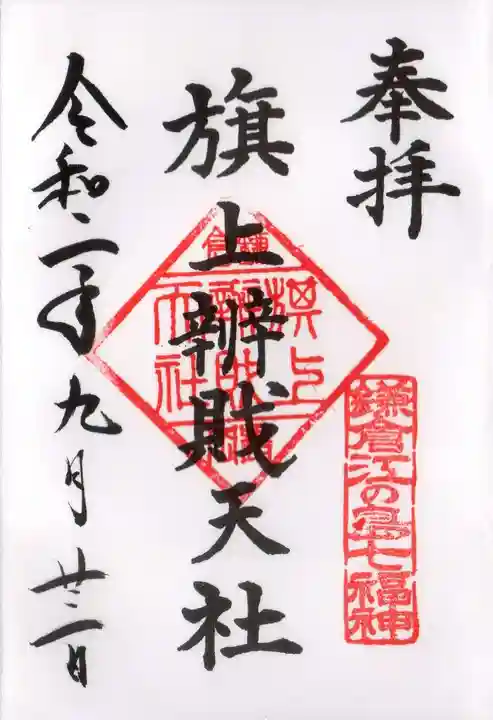 奉拝
鎌倉江の島七福神
旗上辨財天社
令和二年九月廿二日